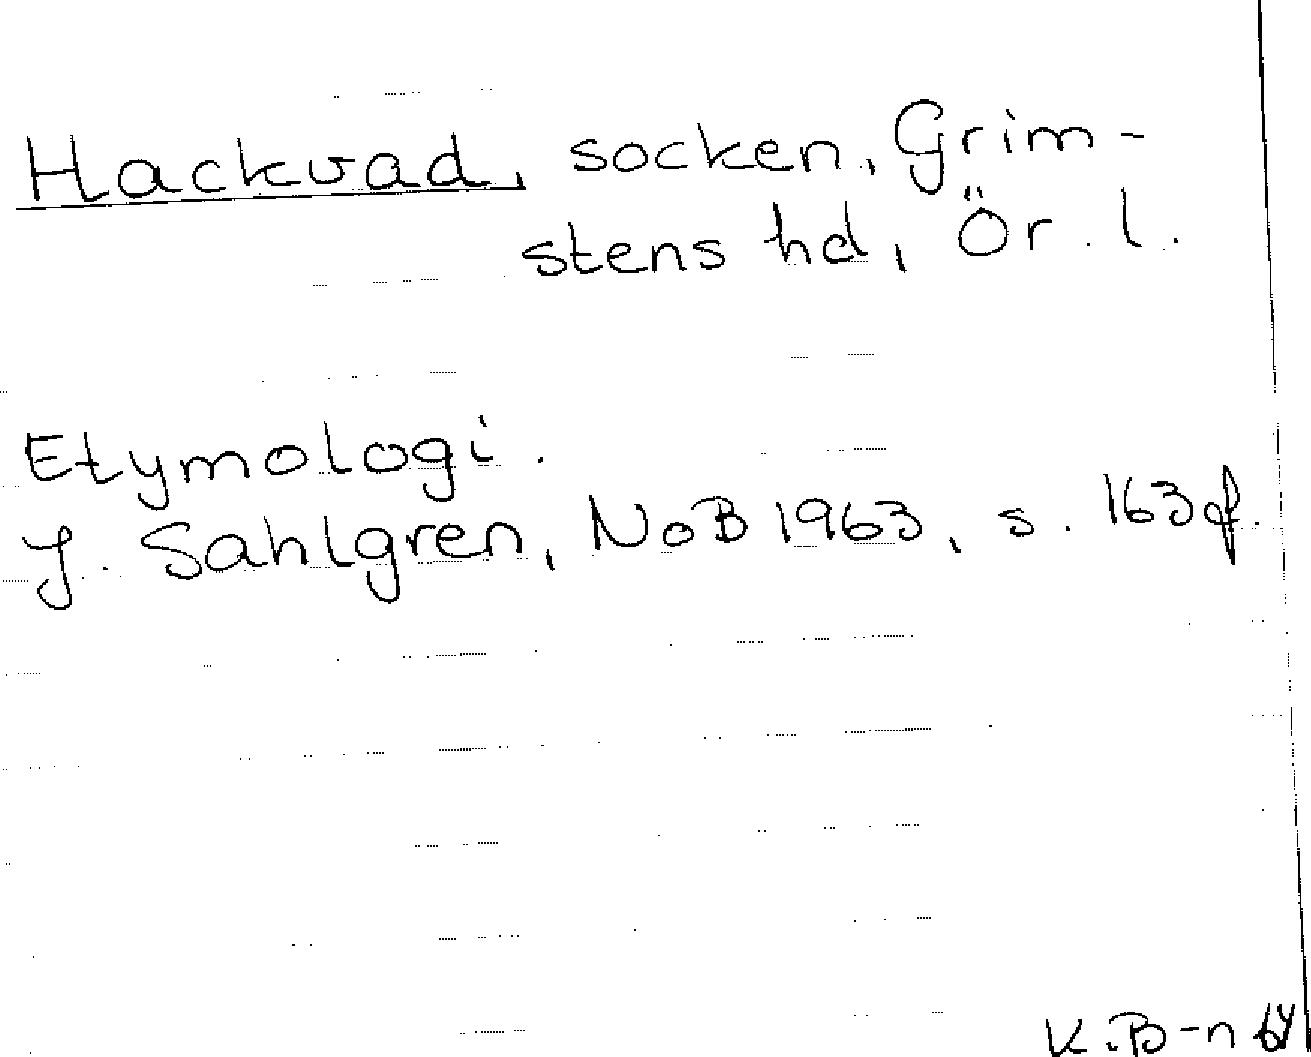 Hackvad, socken, Grim-
stens hd, Ör. l.
Etymologi.
J. Sahlgren, NoB 1963, s. 163 f.
K. B-n 64